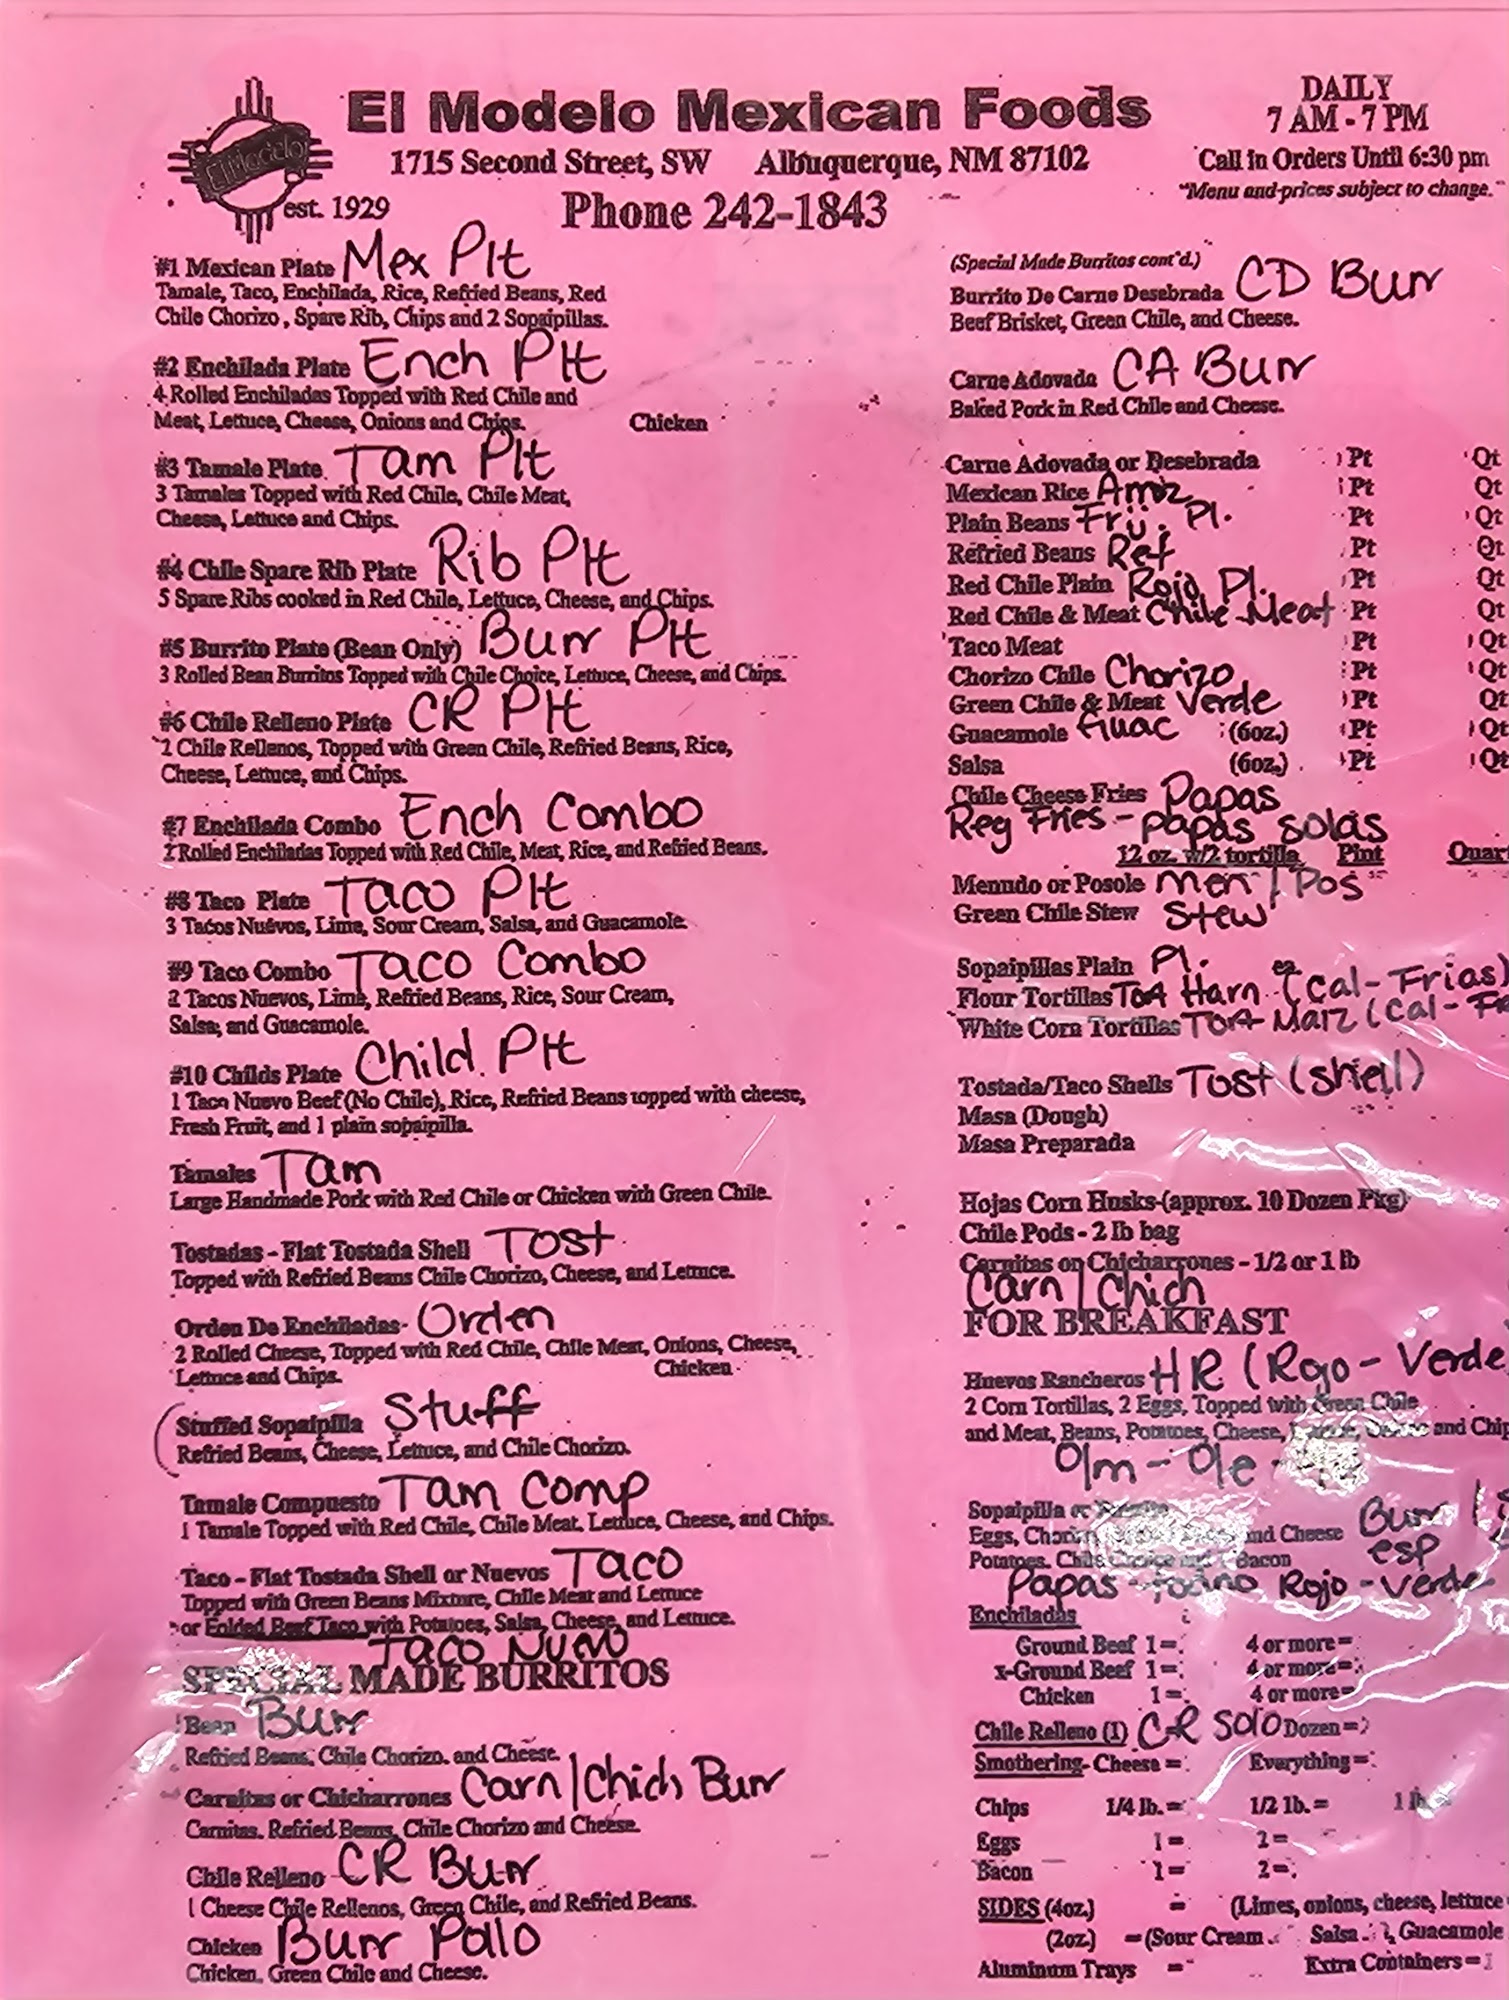 El Modelo Mexican Foods
1715 Second Street, SW Albuquerque, NM 87102
Phone 242-1843
El Modelo
est. 1929
DAILY
7 AM - 7 PM
Call in Orders Until 6:30 pm
"Menu and prices subject to change."
#1 Mexican Plate Mex Plt
Tamale, Taco, Enchilada, Rice, Refried Beans, Red
Chile Chorizo, Spare Rib, Chips and 2 Sopaipillas.
#2 Enchilada Plate Ench Plt
4 Rolled Enchiladas Topped with Red Chile and
Meat, Lettuce, Cheese, Onions and Chips. Chicken
#3 Tamale Plate Tam Plt
3 Tamales Topped with Red Chile, Chile Meat,
Cheese, Lettuce and Chips.
#4 Chile Spare Rib Plate Rib Plt
5 Spare Ribs cooked in Red Chile, Lettuce, Cheese, and Chips.
#5 Burrito Plate (Bean Only) Burr Plt
3 Rolled Bean Burritos Topped with Chile Choice, Lettuce, Cheese, and Chips.
#6 Chile Relleno Plate CR Plt
2 Chile Rellenos, Topped with Green Chile, Refried Beans, Rice,
Cheese, Lettuce, and Chips.
#7 Enchilada Combo Ench Combo
2 Rolled Enchiladas Topped with Red Chile, Meat, Rice, and Refried Beans.
#8 Taco Plate Taco Plt
3 Tacos Nuevos, Lime, Sour Cream, Salsa, and Guacamole.
#9 Taco Combo Taco Combo
2 Tacos Nuevos, Lime, Refried Beans, Rice, Sour Cream,
Salsa, and Guacamole.
#10 Childs Plate Child. Plt
1 Taco Nuevo Beef (No Chile), Rice, Refried Beans topped with cheese,
Fresh Fruit, and 1 plain sopaipilla.
Tamales Tam
Large Handmade Pork with Red Chile or Chicken with Green Chile.
Tostadas - Flat Tostada Shell Tost
Topped with Refried Beans Chile Chorizo, Cheese, and Lettuce.
Orden De Enchiladas- Orden
2 Rolled Cheese, Topped with Red Chile, Chile Meat, Onions, Cheese,
Lettuce and Chips. Chicken
Stuffed Sopaipilla Stuff
Refried Beans, Cheese, Lettuce, and Chile Chorizo.
Tamale Compuesto Tam Comp
1 Tamale Topped with Red Chile, Chile Meat, Lettuce, Cheese, and Chips.
Taco - Flat Tostada Shell or Nuevos Taco
Topped with Green Beans Mixture, Chile Meat and Lettuce
or Folded Beef Taco with Potatoes, Salsa, Cheese, and Lettuce.
Taco Nuevo
SPECIAL MADE BURRITOS
Bean Burr
Refried Beans, Chile Chorizo, and Cheese.
Carnitas or Chicharrones Carn/Chich Burr
Carnitas, Refried Beans, Chile Chorizo and Cheese.
Chile Relleno CR Burr
1 Cheese Chile Rellenos, Green Chile, and Refried Beans.
Chicken Burr Pollo
Chicken, Green Chile and Cheese.
(Special Made Burritos cont'd.)
Burrito De Carne Desebrada CD Burr
Beef Brisket, Green Chile, and Cheese.
Carne Adovada CA Burr
Baked Pork in Red Chile and Cheese.
Carne Adovada or Desebrada Pt Qt
Mexican Rice Arroz Pt Qt
Plain Beans Frij. Pl. Pt Qt
Refried Beans Ref Pt Qt
Red Chile Plain Rojo Pl. Pt Qt
Red Chile & Meat Chile Meat Pt Qt
Taco Meat Pt Qt
Chorizo Chile Chorizo Pt Qt
Green Chile & Meat Verde Pt Qt
Guacamole Guac (6oz.) Pt Qt
Salsa (6oz.) Pt Qt
Chile Cheese Fries Papas
Reg Fries - papas solas
12 oz. w/2 tortilla Pint Quar
Menudo or Posole Men / Pos
Green Chile Stew Stew
Sopaipillas Plain Pl.
Flour Tortillas Tor Harn ea (Cal - Frias)
White Corn Tortillas Tor Maiz (Cal - Fr
Tostada/Taco Shells Tost (shell)
Masa (Dough)
Masa Preparada
Hojas Corn Husks-(approx. 10 Dozen Pkg)
Chile Pods - 2 lb bag
Carnitas or Chicharrones - 1/2 or 1 lb
Carn / Chich
FOR BREAKFAST
Huevos Rancheros HR (Rojo - Verde
2 Corn Tortillas, 2 Eggs, Topped with Green Chile
and Meat, Beans, Potatoes, Cheese, and Chip
O/m - O/e -
Sopaipilla or
Eggs, and Cheese Burr /
Potatoes, Chile Bacon esp
Papas - Tocino Rojo - Verde
Enchiladas
Ground Beef 1= 4 or more=
x-Ground Beef 1= 4 or more=
Chicken 1= 4 or more=
Chile Relleno (1) CR Solo Dozen=
Smothering- Cheese = Everything=
Chips 1/4 lb.= 1/2 lb.= 1 lb =
Eggs 1= 2=
Bacon 1= 2=
SIDES (4oz.) = (Limes, onions, cheese, lettuce
(2oz.) =(Sour Cream Salsa Guacamole
Aluminum Trays = Extra Containers=